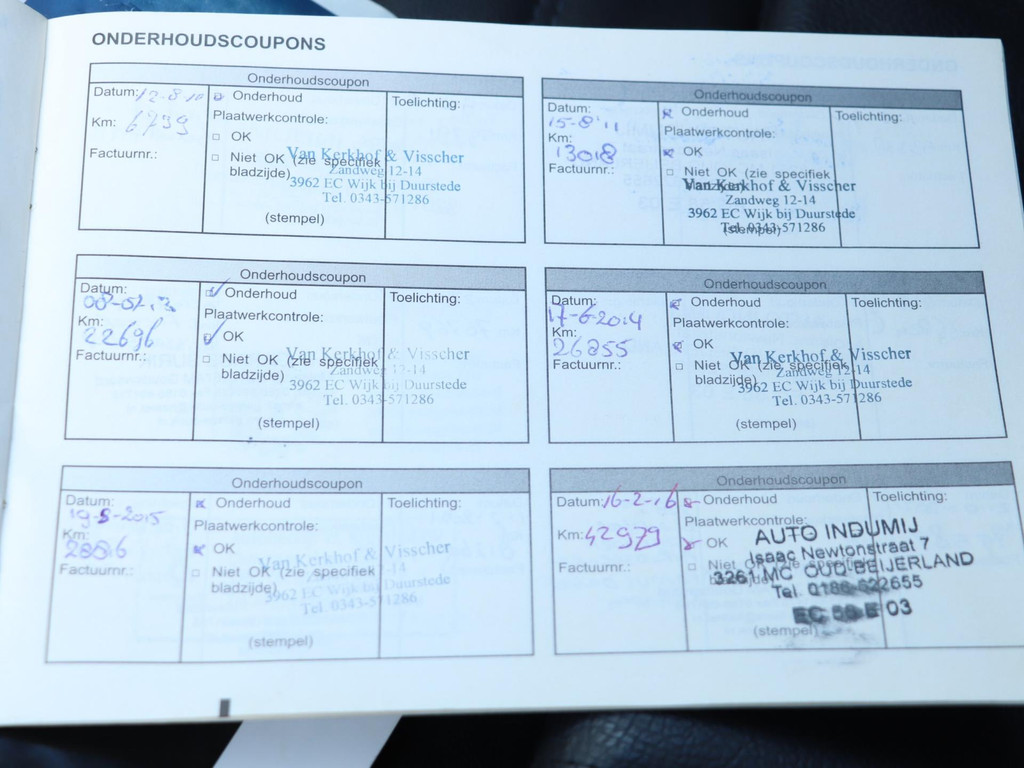 ONDERHOUDSCOUPONS
Onderhoudscoupon
Datum: 12-8-10
Km: 6739
Factuurnr.:
Onderhoud
Plaatwerkcontrole:
OK
Niet OK (zie specifiek
bladzijde)
Toelichting:
Van Kerkhof & Visscher
Zandweg 12-14
3962 EC Wijk bij Duurstede
Tel. 0343-571286
(stempel)
Onderhoudscoupon
Datum:
15-8-'11
Km:
13018
Factuurnr.:
Onderhoud
Plaatwerkcontrole:
OK
Niet OK (zie specifiek
bladzijde)
Toelichting:
Van Kerkhof & Visscher
Zandweg 12-14
3962 EC Wijk bij Duurstede
Tel. 0343-571286
(stempel)
Onderhoudscoupon
Datum:
Km:
22696
Factuurnr.:
Onderhoud
Plaatwerkcontrole:
OK
Niet OK (zie specifiek
bladzijde)
Toelichting:
Van Kerkhof & Visscher
Zandweg 12-14
3962 EC Wijk bij Duurstede
Tel. 0343-571286
(stempel)
Onderhoudscoupon
Datum:
17-6-2014
Km:
26855
Factuurnr.:
Onderhoud
Plaatwerkcontrole:
OK
Niet OK (zie specifiek
bladzijde)
Toelichting:
Van Kerkhof & Visscher
Zandweg 12-14
3962 EC Wijk bij Duurstede
Tel. 0343-571286
(stempel)
Onderhoudscoupon
Datum:
19-5-2015
Km:
Factuurnr.:
Onderhoud
Plaatwerkcontrole:
OK
Niet OK (zie specifiek
bladzijde)
Toelichting:
Van Kerkhof & Visscher
Zandweg 12-14
3962 EC Wijk bij Duurstede
Tel. 0343-571286
(stempel)
Onderhoudscoupon
Datum: 16-2-16
Km: 42979
Factuurnr.:
Onderhoud
Plaatwerkcontrole:
OK
Niet OK (zie specifiek
bladzijde)
Toelichting:
AUTO INDUMIJ
Isaac Newtonstraat 7
3261 MC OUD-BEIJERLAND
Tel. 0186-622655
(stempel)